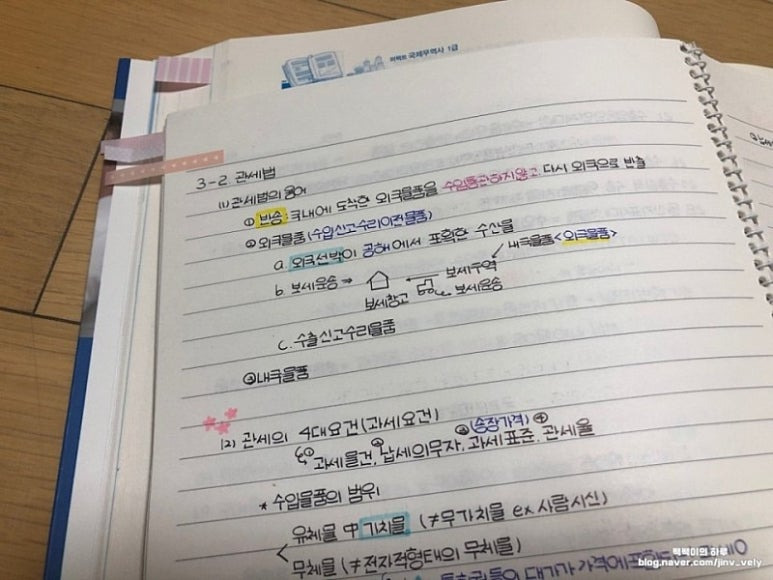 퍼펙트 국제무역사 1급
3-2. 관세법
(1) 관세법의 용어
① 반송: 국내에 도착한 외국물품을 수입통관하지않고 다시 외국으로 반출
② 외국물품(수입신고수리이전물품)
a. 외국선박이 공해에서 포획한 수산물
내국물품<외국물품>
b. 보세운송⇒ ← 보세구역
보세창고 보세운송
c. 수출신고수리물품
③내국물품
(2) 관세의 4대요건(과세요건)
(송장가격)
① 과세물건, ② 납세의무자, ③ 과세표준, ④ 관세율
* 수입물품의 범위
유체물 中 가치물 (≠무가치물 ex 사람시신)
무체물 (≠전자적형태의 무체물)
떽떽이의 하루
blog.naver.com/jinv_vely